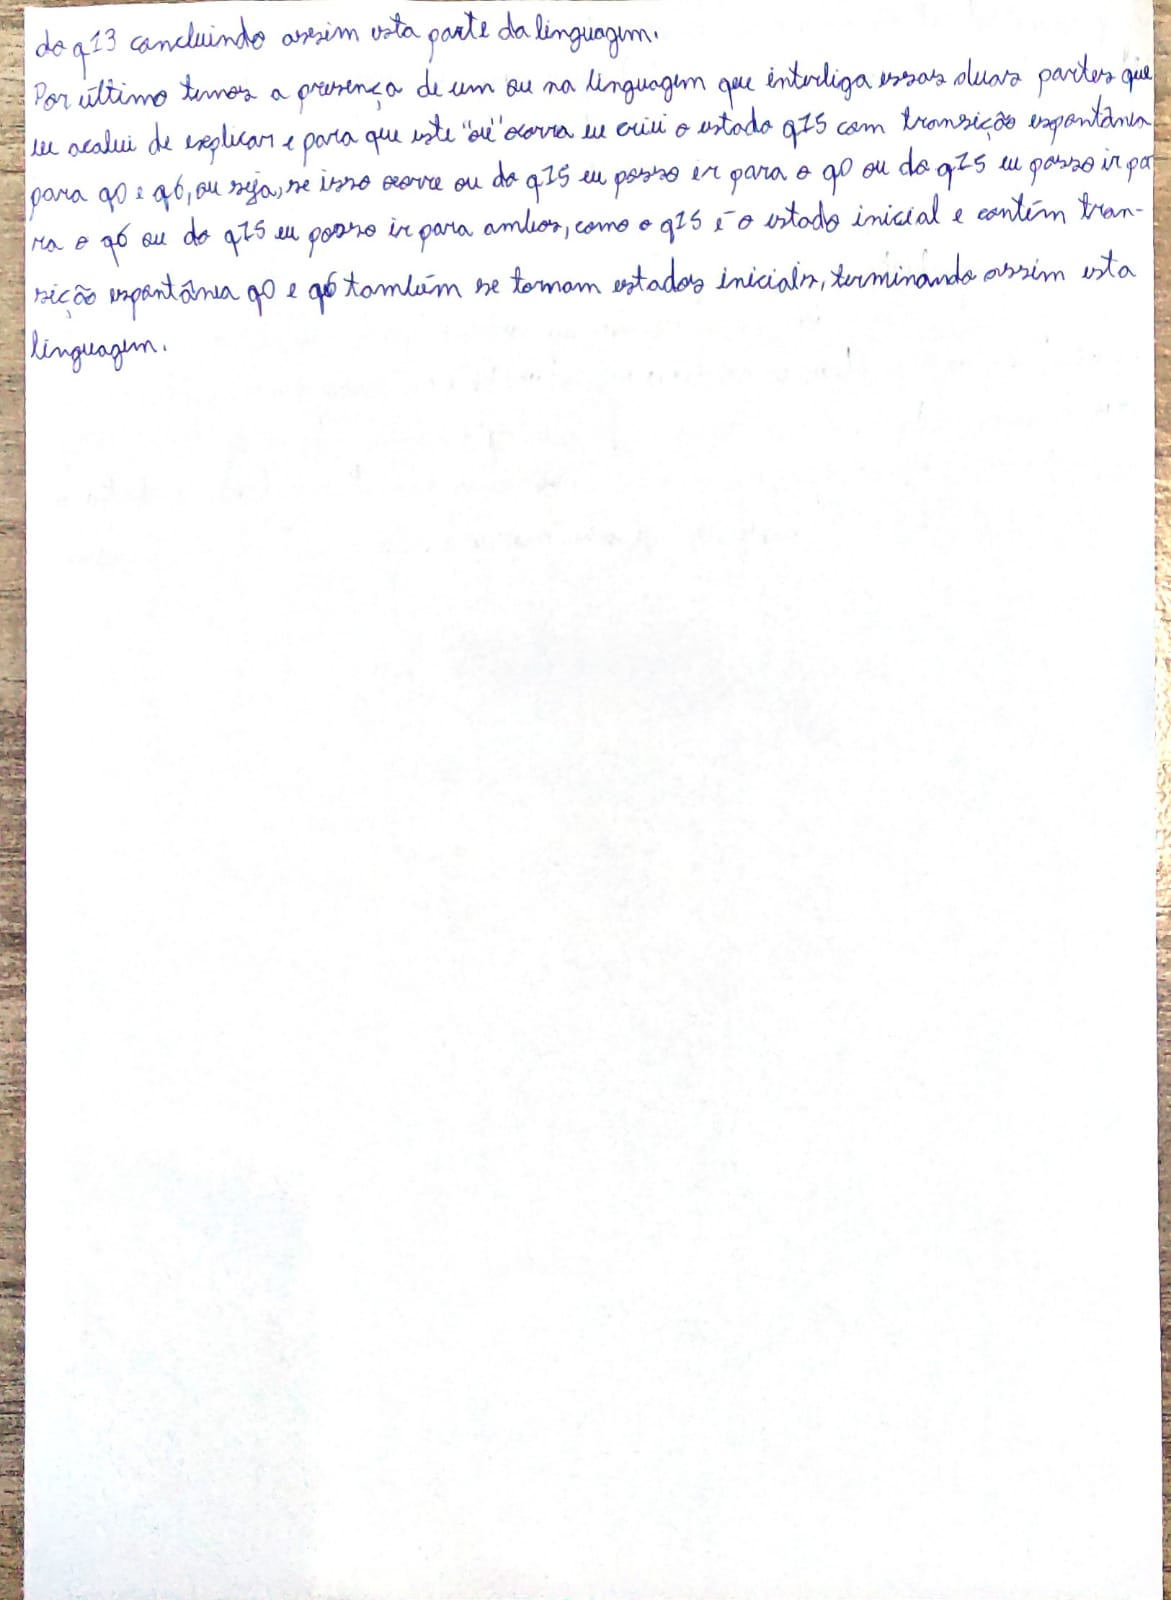 do q13 concluindo assim esta parte da linguagem.
Por último temos a presença de um ou na linguagem que interliga essas duas partes que
eu acabei de explicar e para que este "ou" ocorra eu criei o estado q15 com transição espontânea
para q0 e q6, ou seja, se isso ocorre ou do q15 eu posso ir para o q0 ou do q15 eu posso ir pa
ra o q6 ou do q15 eu posso ir para ambos, como o q15 é o estado inicial e contém tran-
sição espontânea q0 e q6 também se tornam estados iniciais, terminando assim esta
linguagem.